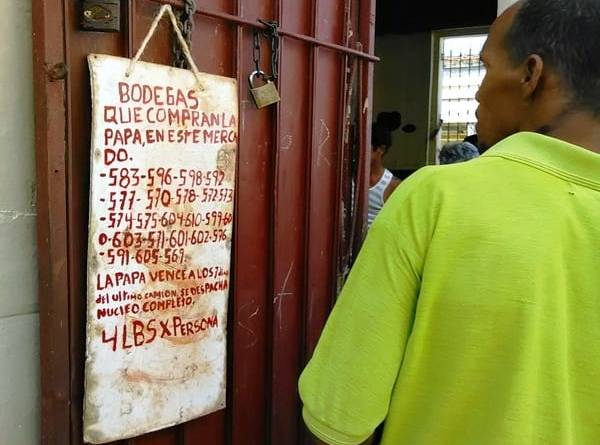 BODEGAS
QUE COMPRAN LA
PAPA, EN ESTE MERCA
DO.
-583-596-598-592
-577-570-578-572-573
-574-575-604-610-599-60
0-603-571-601-602-576
-591-605-569.
LA PAPA VENCE A LOS 7 dias
del ULTIMO CAMION, SE DESPACHA
NUCLEO COMPLETO.
4 LBS X PERSONA